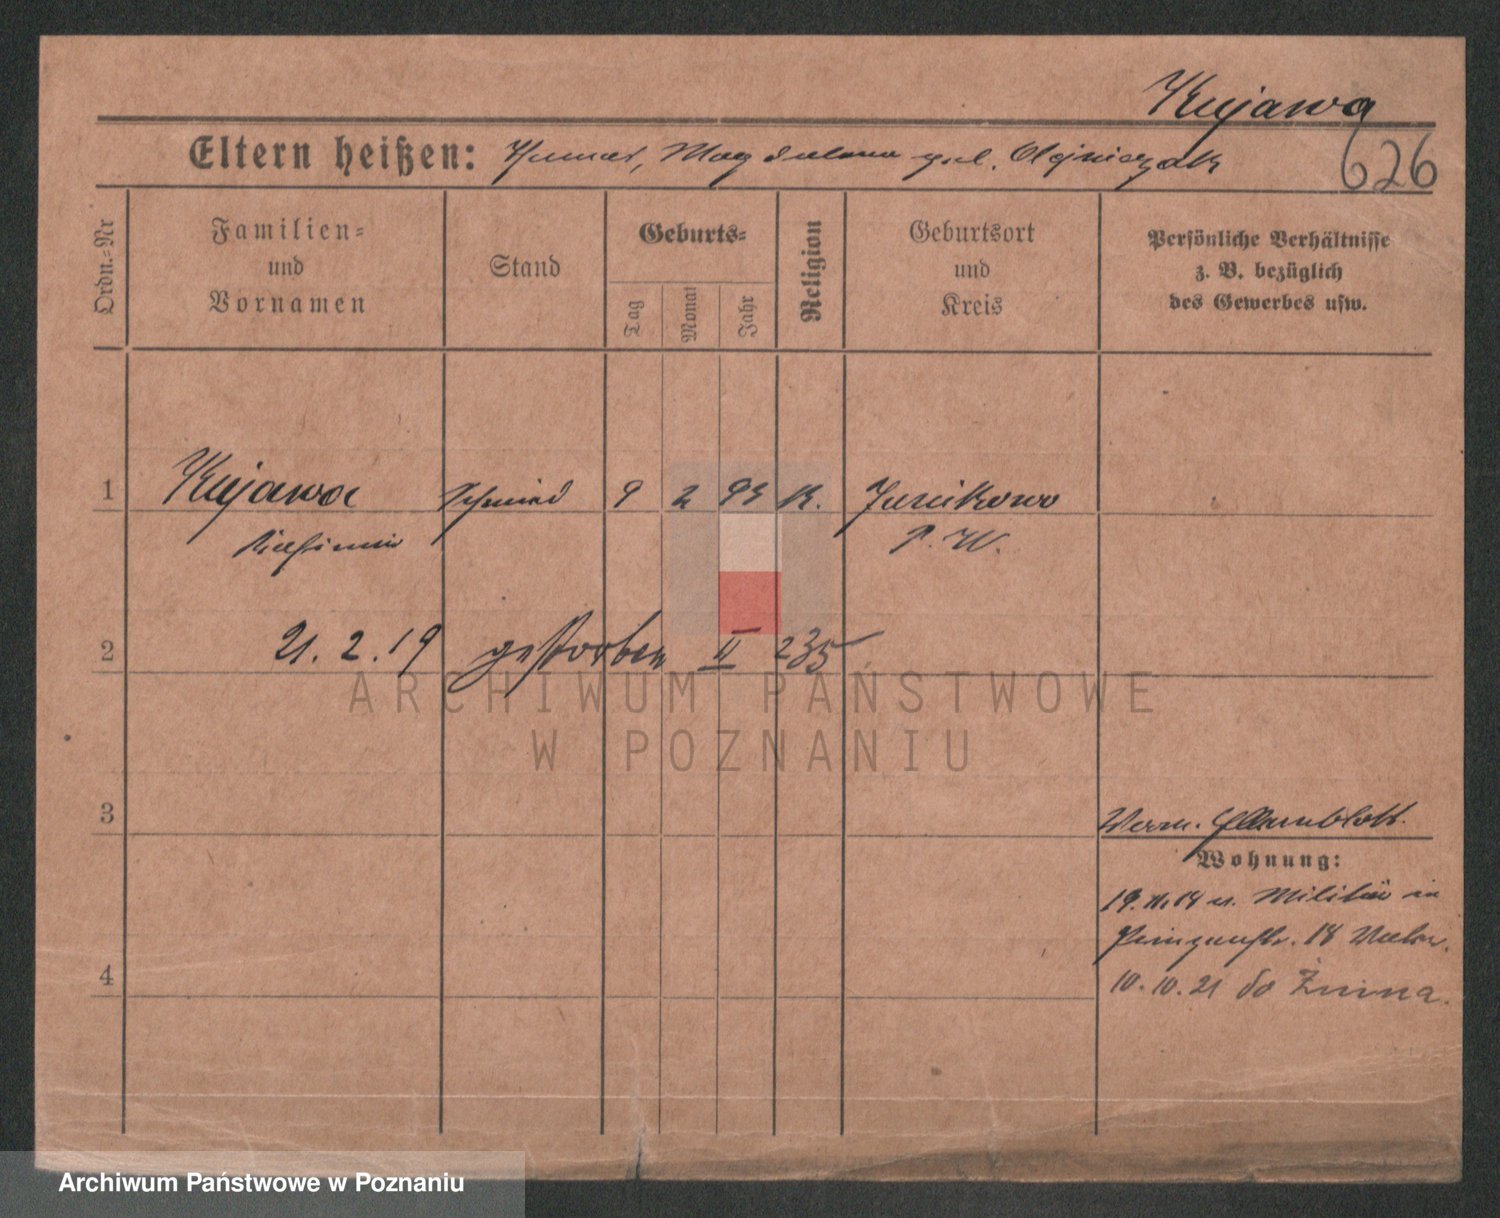 Kujawa
Eltern heißen: Thomas, Magdalena geb. Olejniczak
626
Ordn.-Nr
Familien- und Vornamen
Stand
Geburts-
Tag
Monat
Jahr
Religion
Geburtsort und Kreis
Persönliche Verhältnisse
z. B. bezüglich
des Gewerbes usw.
1 Kujawa Schmied 9 2 93 K. Janikowo
P. W.
2 21. 2. 19 gestorben II 235
ARCHIWUM PAŃSTWOWE
W POZNANIU
3
Wohnung:
4
19. 11. 14 v. Militär in
18
10. 10. 21 do Żnina.
Archiwum Państwowe w Poznaniu